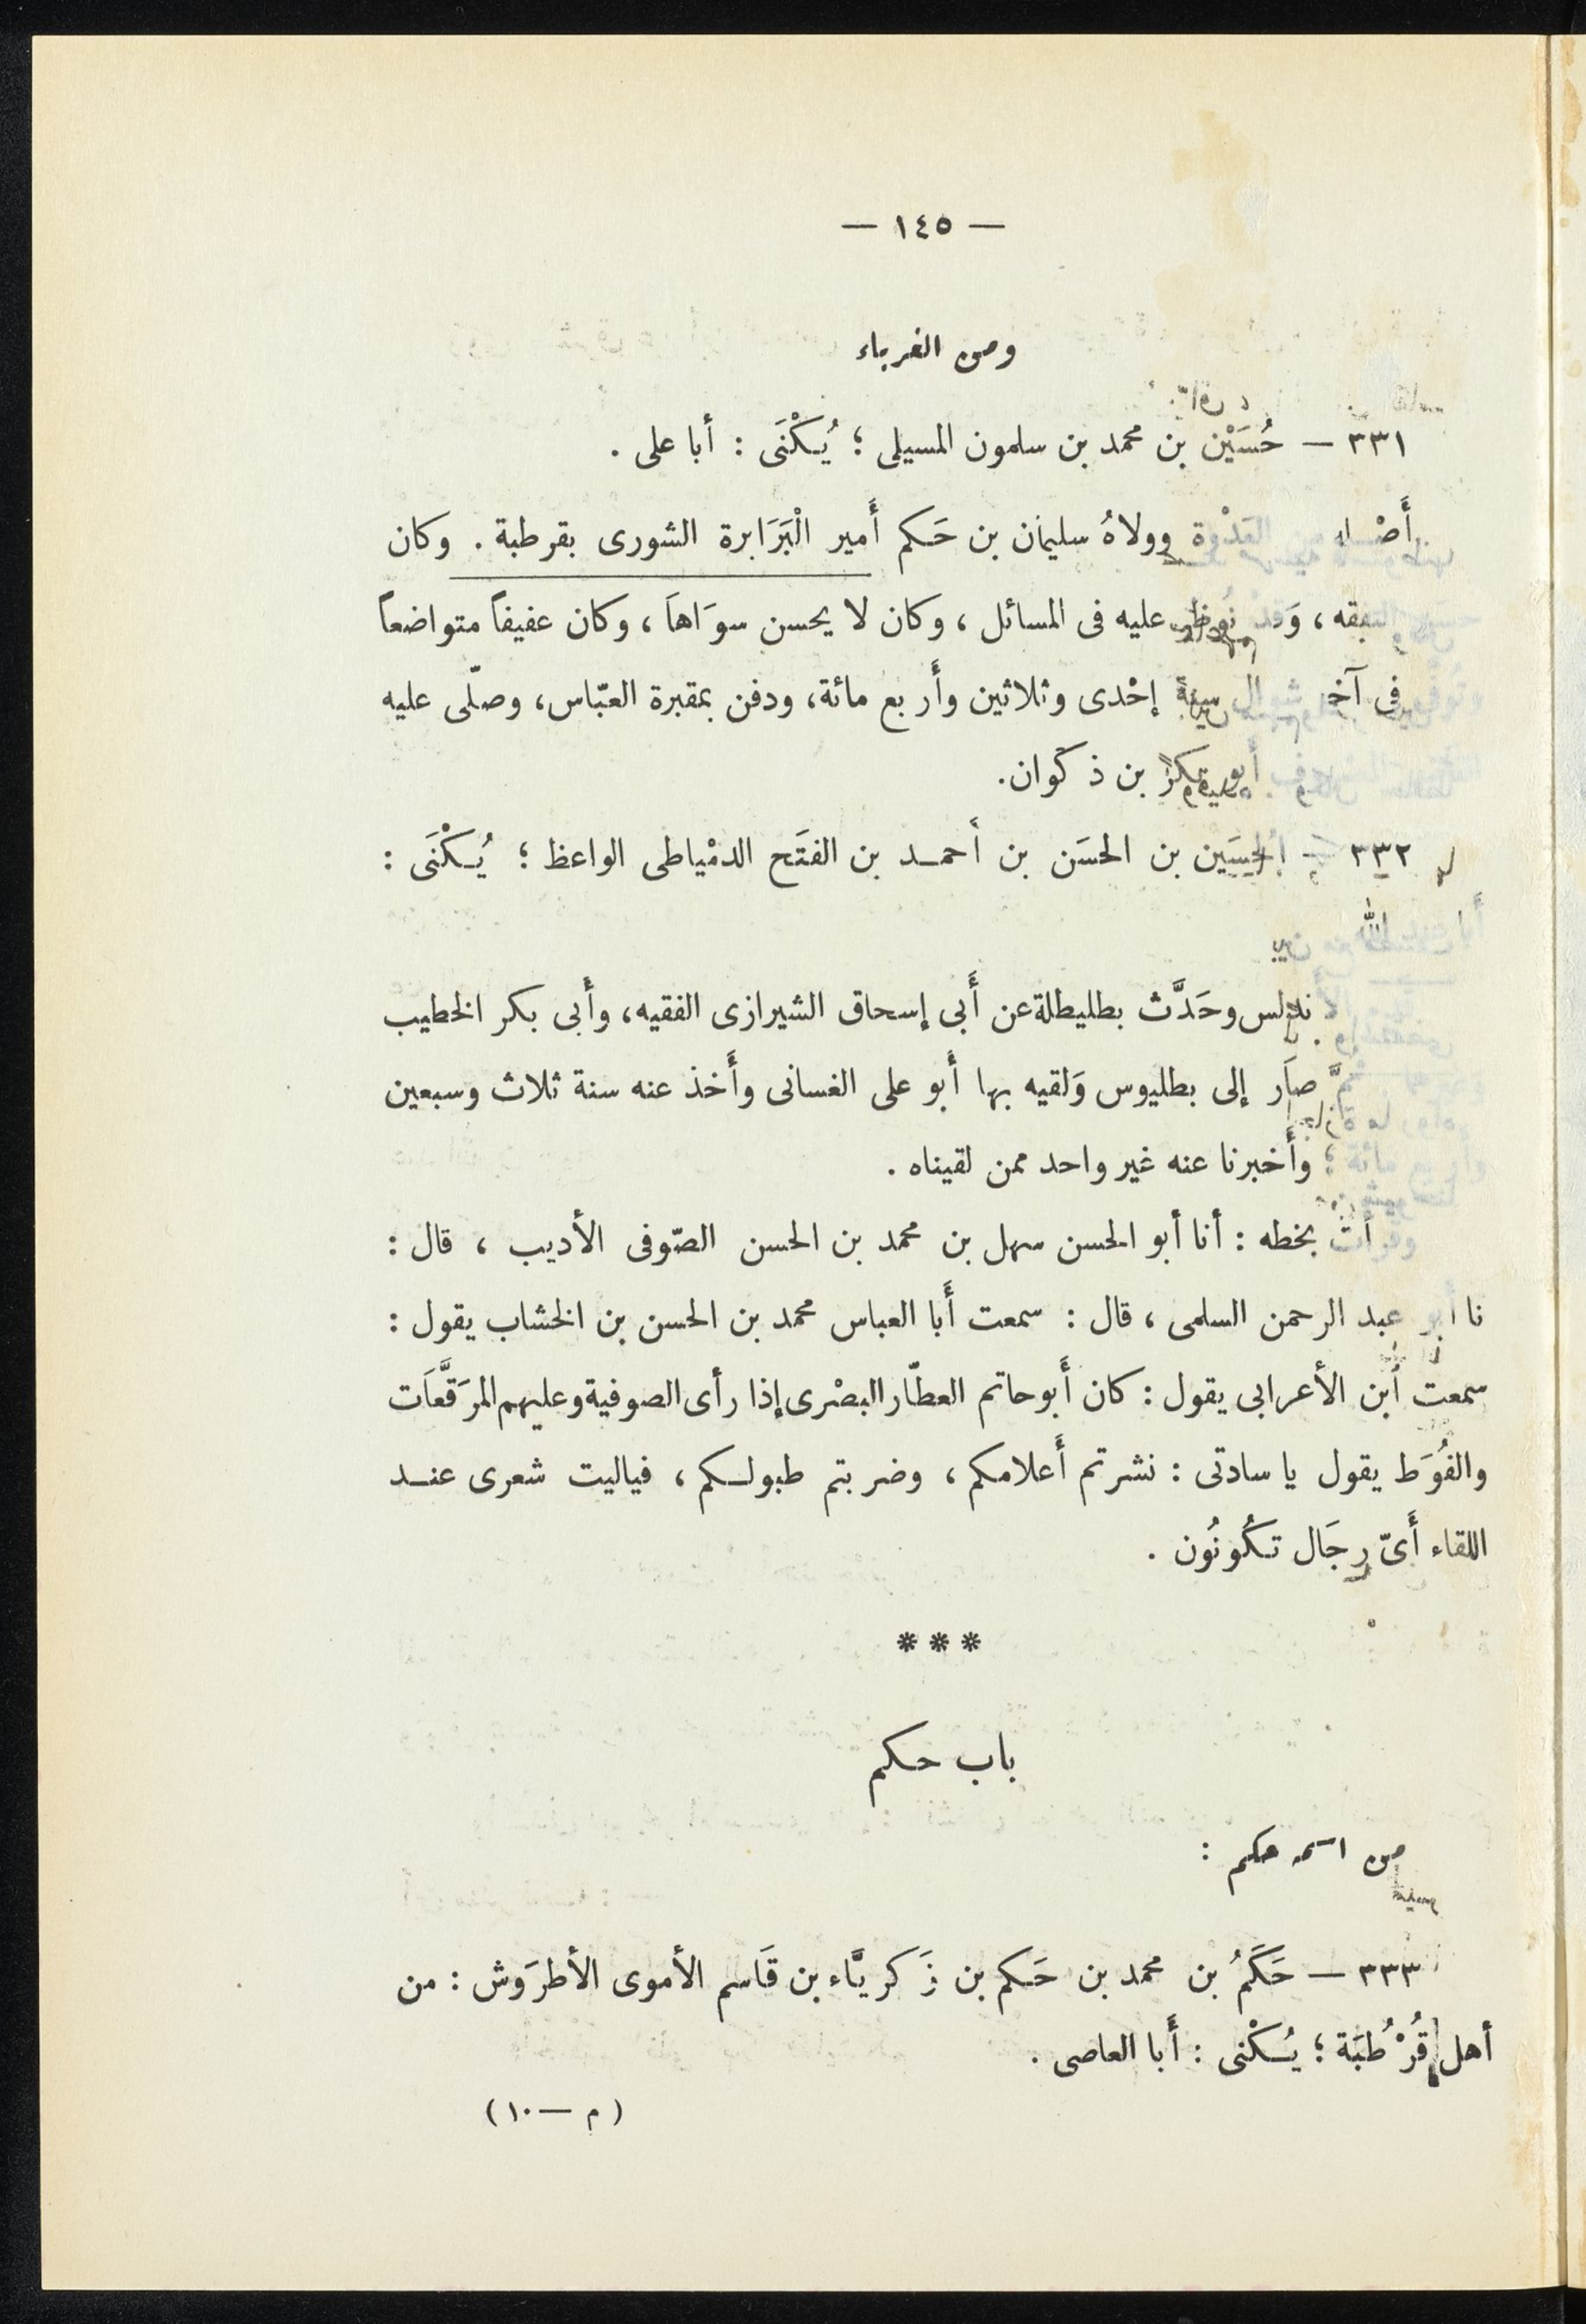 — ١٤٥ —
ومن الغرباء
٣٣١ — حُسَيْن بن محمد بن سلمون المسيلى ؛ يُكْنَى : أبا على .
العَدْوة وولاهُ سليمان بن حَكم أَمير الْبَرَابرة الشورى بقرطبة . وكان
عليه فى المسائل ، وكان لا يحسن سوَاهاَ ، وكان عفيفاً متواضعاً
فى آخر شوال سنة إحْدى وثلاثين وأَربع مائة، ودفن بمقبرة العبّاس، وصلّى عليه
أبو بكر بن ذكوان.
٣٣٢ — الحسَين بن الحسَن بن أحمد بن الفتَح الدمْياطى الواعظ ؛ يُكْنَى :
وحَدَّث بطليطلة عن أَبى إسحاق الشيرازى الفقيه، وأَبى بكر الخطيب
صاَر إلى بطليوس وَلقيه بها أَبو على الغسانى وأَخذ عنه سنة ثلاث وسبعين
وأَخبرنا عنه غير واحد ممن لقيناه .
بخطه : أنا أبو الحسن سهل بن محمد بن الحسن الصّوفى الأديب ، قال :
نا أبو عبد الرحمن السلمى ، قال : سمعت أَبا العباس محمد بن الحسن بن الخشاب يقول :
سمعت أبن الأعرابى يقول : كان أَبو حاتم العطّار البصْرى إذا رأى الصوفية وعليهم المرَقَّعاَت
والفُوَط يقول يا سادتى : نشرتم أَعلامكم ، وضربتم طبولكم ، فياليت شعرى عند
اللقاء أَىّ رجَال تكُونُون .
* * *
باب حكم
من اسمه حكم :
٣٣٣ — حَكَمُ بن محمد بن حَكم بن زَكريَّاء بن قَاسم الأموى الأطرَوش : من
أهل قُرْطُبَة ؛ يُكْنى : أَبا العاصى .
( م — ١٠ )